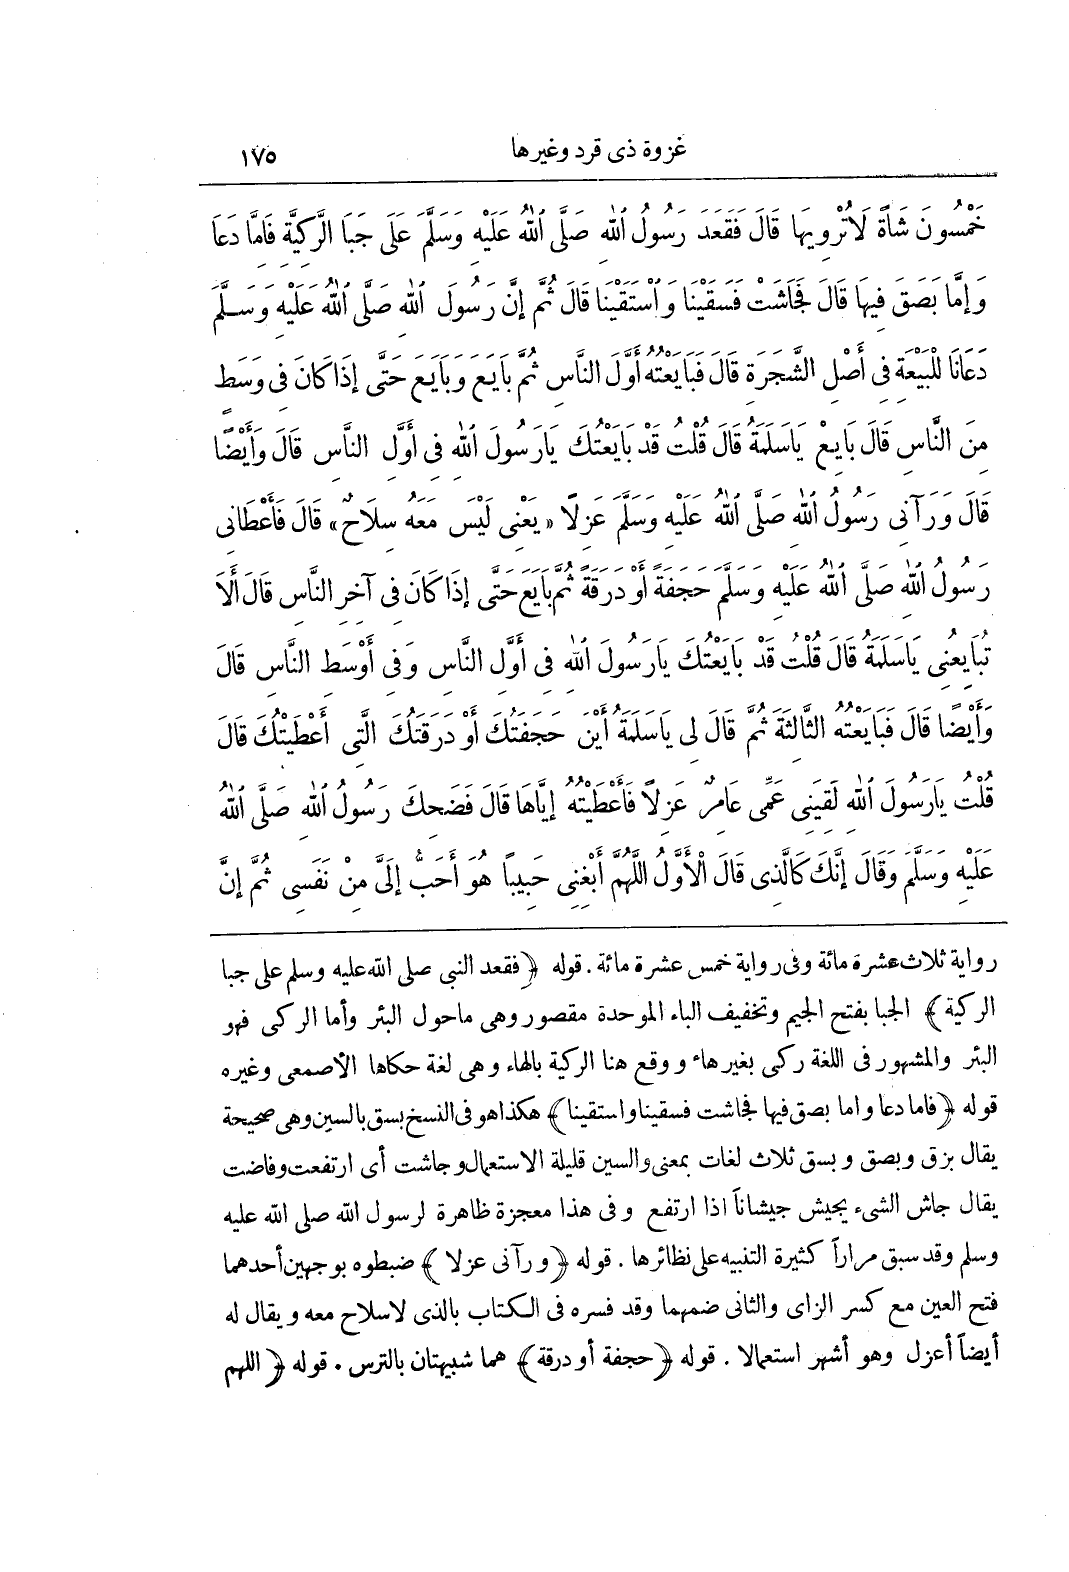 غزوة ذى قرد وغيرها ١٧٥
خَمْسُونَ شَاةً لَاتُرْوِيهَا قَالَ فَقَعَدَ رَسُولُ ٱللهِ صَلَّى ٱللهُ عَلَيْهِ وَسَلَّمَ عَلَى جَبَا الرَّكِيَّةِ فَإِمَّا دَعَا
وَإِمَّا بَصَقَ فِيهَا قَالَ فَجَاشَتْ فَسَقَيْنَا وَٱسْتَقَيْنَا قَالَ ثُمَّ إِنَّ رَسُولَ ٱللهِ صَلَّى ٱللهُ عَلَيْهِ وَسَلَّمَ
دَعَانَا لِلْبَيْعَةِ فِى أَصْلِ الشَّجَرَةِ قَالَ فَبَايَعْتُهُ أَوَّلَ النَّاسِ ثُمَّ بَايَعَ وَبَايَعَ حَتَّى إِذَا كَانَ فِى وَسَطٍ
مِنَ النَّاسِ قَالَ بَايِعْ يَاسَلَمَةُ قَالَ قُلْتُ قَدْ بَايَعْتُكَ يَارَسُولَ ٱللهِ فِى أَوَّلِ النَّاسِ قَالَ وَأَيْضًا
قَالَ وَرَآنِى رَسُولُ ٱللهِ صَلَّى ٱللهُ عَلَيْهِ وَسَلَّمَ عَزِلًا «يَعْنِى لَيْسَ مَعَهُ سِلَاحٌ» قَالَ فَأَعْطَانِى
رَسُولُ ٱللهِ صَلَّى ٱللهُ عَلَيْهِ وَسَلَّمَ حَجَفَةً أَوْ دَرَقَةً ثُمَّ بَايَعَ حَتَّى إِذَا كَانَ فِى آخِرِ النَّاسِ قَالَ أَلَا
تُبَايِعُنِى يَاسَلَمَةُ قَالَ قُلْتُ قَدْ بَايَعْتُكَ يَارَسُولَ ٱللهِ فِى أَوَّلِ النَّاسِ وَفِى أَوْسَطِ النَّاسِ قَالَ
وَأَيْضًا قَالَ فَبَايَعْتُهُ الثَّالِثَةَ ثُمَّ قَالَ لِى يَاسَلَمَةُ أَيْنَ حَجَفَتُكَ أَوْ دَرَقَتُكَ الَّتِى أَعْطَيْتُكَ قَالَ
قُلْتُ يَارَسُولَ ٱللهِ لَقِيَنِى عَمِّى عَامِرٌ عَزِلًا فَأَعْطَيْتُهُ إِيَّاهَا قَالَ فَضَحِكَ رَسُولُ ٱللهِ صَلَّى ٱللهُ
عَلَيْهِ وَسَلَّمَ وَقَالَ إِنَّكَ كَالَّذِى قَالَ الْأَوَّلُ اللَّهُمَّ أَبْغِنِى حَبِيبًا هُوَ أَحَبُّ إِلَىَّ مِنْ نَفْسِى ثُمَّ إِنَّ
رواية ثلاث عشرة مائة وفى رواية خمس عشرة مائة . قوله ﴿فقعد النبى صلى الله عليه وسلم على جبا
الركية﴾ الجبا بفتح الجيم وتخفيف الباء الموحدة مقصور وهى ماحول البئر وأما الركى فهو
البئر والمشهور فى اللغة ركى بغير هاء ووقع هنا الركية بالهاء وهى لغة حكاها الأصمعى وغيره
قوله ﴿فاما دعا واما بصق فيها فجاشت فسقينا واستقينا﴾ هكذا هو فى النسخ بسق بالسين وهى صحيحة
يقال بزق وبصق وبسق ثلاث لغات بمعنى والسين قليلة الاستعمال وجاشت أى ارتفعت وفاضت
يقال جاش الشىء يجيش جيشاناً اذا ارتفع وفى هذا معجزة ظاهرة لرسول الله صلى الله عليه
وسلم وقد سبق مراراً كثيرة التنبيه على نظائرها . قوله ﴿ورآنى عزلا﴾ ضبطوه بوجهين أحدهما
فتح العين مع كسر الزاى والثانى ضمهما وقد فسره فى الكتاب بالذى لاسلاح معه ويقال له
أيضاً أعزل وهو أشهر استعمالا . قوله ﴿حجفة أو درقة﴾ هما شبيهتان بالترس . قوله ﴿اللهم